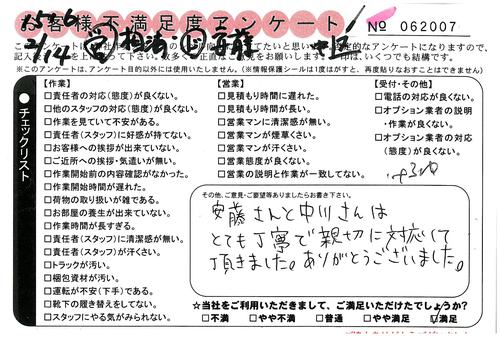 お客様不満足度アンケート
№ 062007
2/14
※このアンケートは、アンケート目的以外には使用いたしません。(※情報保護シールは1度はがすと、再度貼りなおすことはできません)
チェックリスト
【作業】
□責任者の対応(態度)が良くない。
□他のスタッフの対応(態度)が良くない。
□作業を見ていて不安がある。
□責任者(スタッフ)に好感が持てない。
□お客様への挨拶が出来ていない。
□ご近所への挨拶・気遣いが無い。
□作業開始前の内容確認がなかった。
□作業開始時間が遅れた。
□荷物の取り扱いが雑である。
□お部屋の養生が出来ていない。
□作業時間が長すぎる。
□責任者(スタッフ)に清潔感が無い。
□責任者(スタッフ)が汗くさい。
□トラックが汚い。
□梱包資材が汚い。
□運転が不安(下手)である。
□靴下の履き替えをしてない。
□スタッフにやる気がみられない。
【営業】
□見積もり時間に遅れた。
□見積もり時間が長い。
□営業マンに清潔感が無い。
□営業マンが煙草くさい。
□営業マンが汗くさい。
□営業態度が良くない。
□営業の説明と作業が一致してない。
【受付・その他】
□電話の対応が良くない。
□オプション業者の説明
・作業が良くない。
□オプション業者の対応
(態度)が良くない。
その他、ご意見・ご要望等ありましたらお書き下さい。
安藤さんと中川さんは
とても丁寧で親切に対応して
頂きました。ありがとうございました。
☆当社をご利用いただきまして、ご満足いただけたでしょうか?
□不満 □やや不満 □普通 □やや満足 □満足